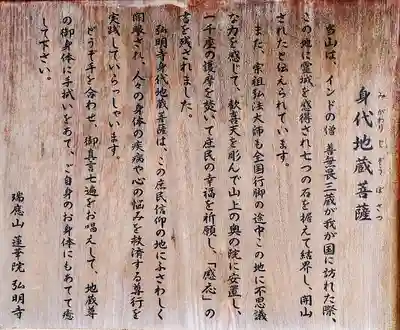 身代地蔵菩薩
みがわりじぞうぼさつ
当山は、インドの僧 善無畏三蔵が我が国に訪れた際、
この地に霊域を感得され七つの石を据えて結界し、開山
されたと伝えられています。
また、宗祖弘法大師も全国行脚の途中この地に不思議
な力を感じて、歓喜天を彫んで山上の奥の院に安置し、
一千座の護摩を焚いて庶民の幸福を祈願し、「感応」の
書を残されました。
弘明寺身代地蔵菩薩は、この庶民信仰の地にふさわしく
開眼され、人々の身体の疾病や心の悩みを救済する尊行を
実践していらっしゃいます。
どうぞ手を合わせ、御真言七遍をお唱えして、地蔵尊
の御身体に手拭いをあて、ご自身のお身体にもあてて癒
して下さい。
瑞應山 蓮華院 弘明寺